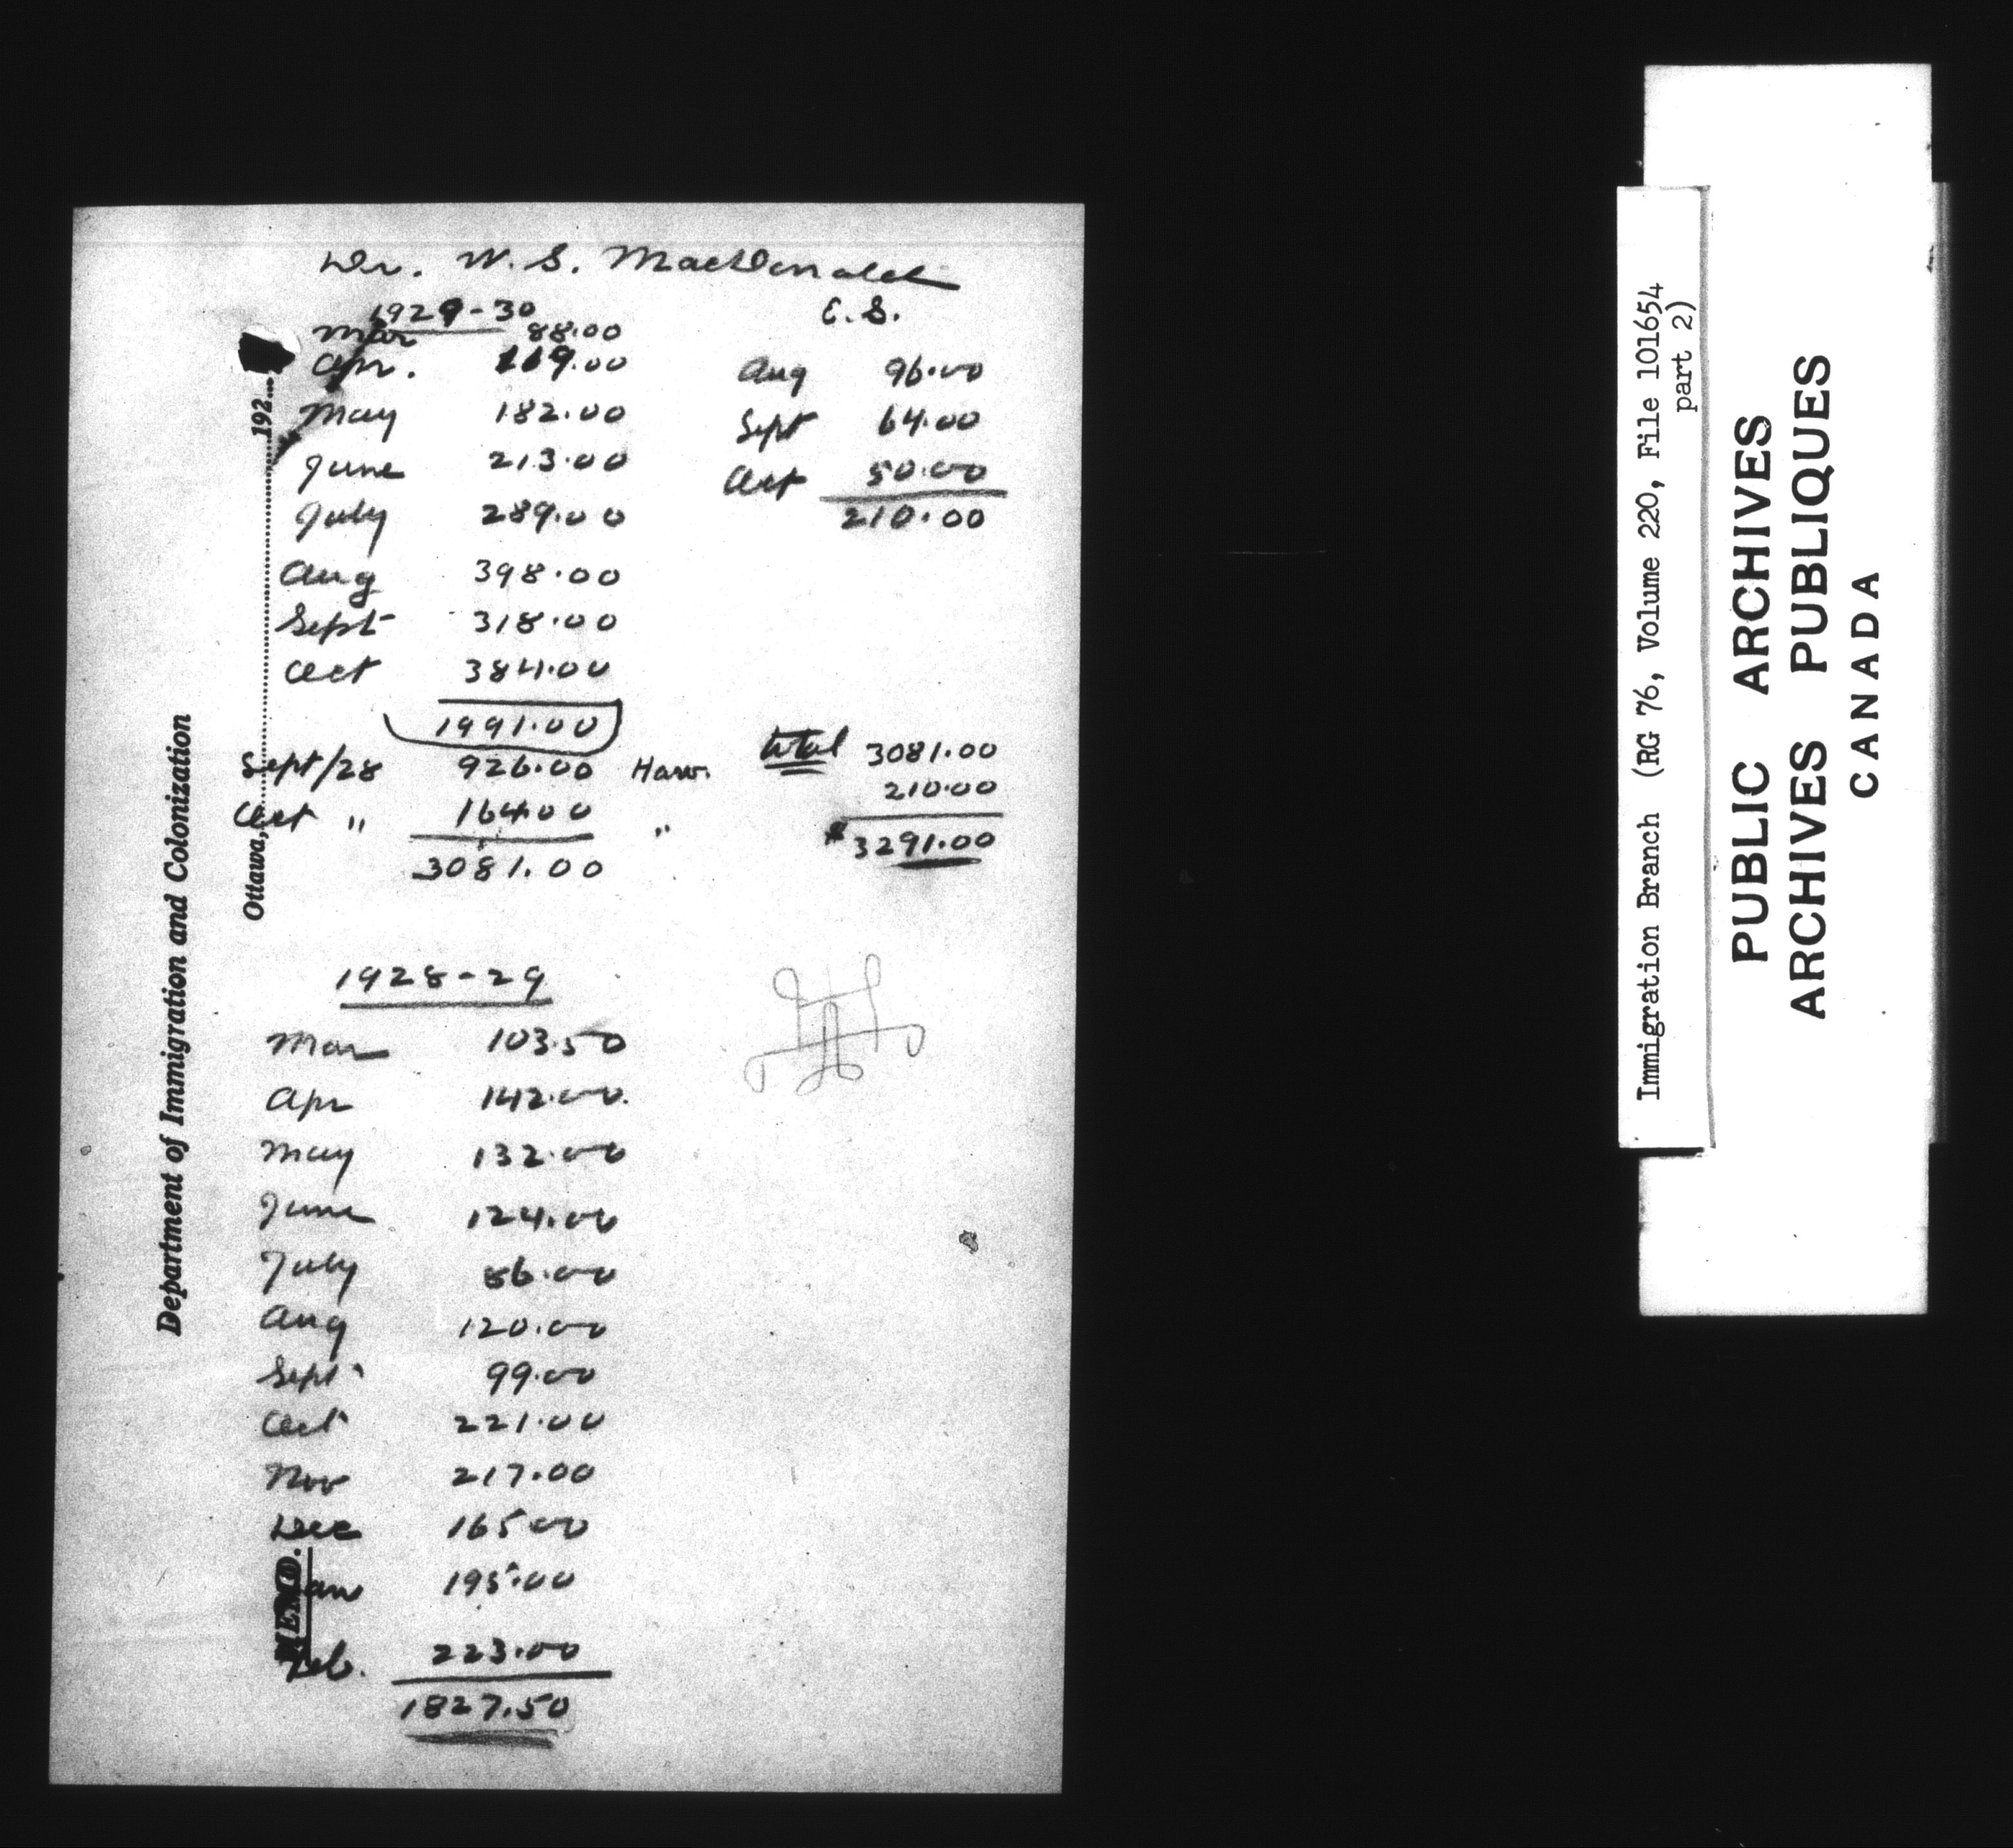 Dr. W. S. MacDonald
1929-30
Mar 88.00
Apr. 119.00
May 182.00
June 213.00
July 289.00
Aug 398.00
Sept 318.00
Oct 384.00
1991.00
Sept/28 926.00
Oct " 164.00 "
3081.00
Aug 96.00
Sept 64.00
Oct 50.00
210.00
total 3081.00
210.00
$ 3291.00
1928-29
Mar 103.50
Apr 142.00
May 132.00
June 124.00
July 86.00
Aug 120.00
Sept 99.00
Oct 221.00
Nov 217.00
Dec 165.00
Jan 195.00
Feb. 223.00
1827.50
Department of Immigration and Colonization
Ottawa, 192
MEMO.
Immigration Branch (RG 76, Volume 220, File 101654
part 2)
PUBLIC ARCHIVES
ARCHIVES PUBLIQUES
CANADA